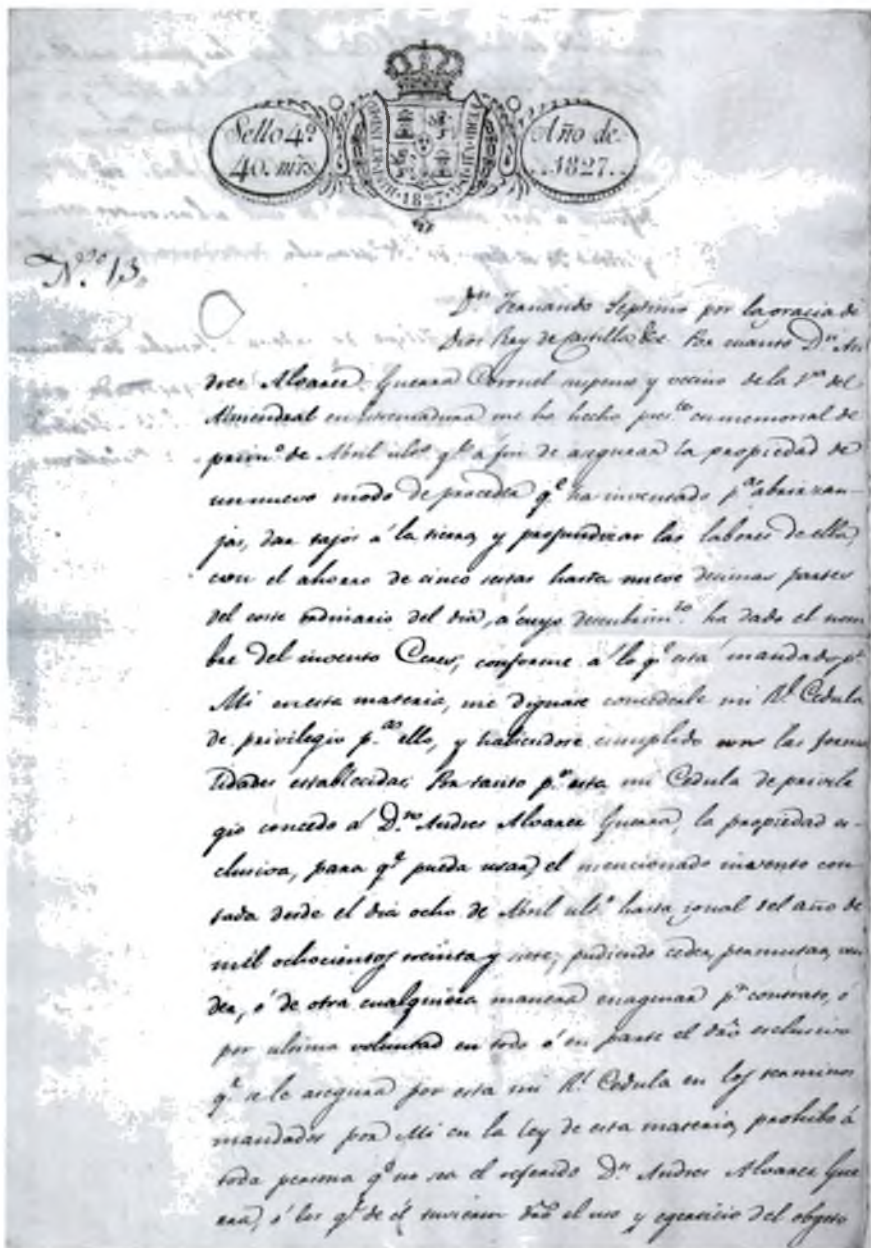 Sello 4º
40. mrs.
HISPANIAR. REX
1827
Año de
1827.
N.º 13.
Dn Fernando Septimo por la gracia de
Dios Rey de Castilla &c. Por cuanto Dn An
dres Alvarez Guerra Coronel supern.º y vecino de la Va del
Almendral en Extremadura me ha hecho pres.te en memorial de
prim.º de Abril ult.º q.e a fin de asegurar la propiedad de
un nuevo modo de proceder q.e ha inventado p.a abrir zan-
jas, dar tajos á la tierra, y profundizar las labores de ella,
con el ahorro de cinco sestas hasta nueve decimas partes
del coste ordinario del dia, á cuyo descubrim.to ha dado el nom
bre del invento Ceres, conforme á lo q.e está mandado p.r
Mi en esta materia, me dignase concederle mi Rl. Cedula
de privilegio p.a ello, y habiendose cumplido con las forma
lidades establecidas; Por tanto p.r esta mi Cedula de privile
gio concedo á D.n Andres Alvarez Guerra, la propiedad es-
clusiva, para q.e pueda usar, el mencionado invento con
tada desde el dia ocho de Abril ult.º hasta igual del año de
mil ochocientos treinta y siete; pudiendo ceder, permutar, ven
der, ó de otra cualquiera manera enagenar p.r contrato, ó
por ultima voluntad en todo ó en parte el dro esclusivo
q.e se le asegura por esta mi Rl. Cedula en los terminos
mandados por Mi en la ley de esta materia, prohibo á
toda persona q.e no sea el referido Dn. Andres Alvarez Gue
rra, ó los q.e de él tuvieren dro el uso y egercicio del objeto